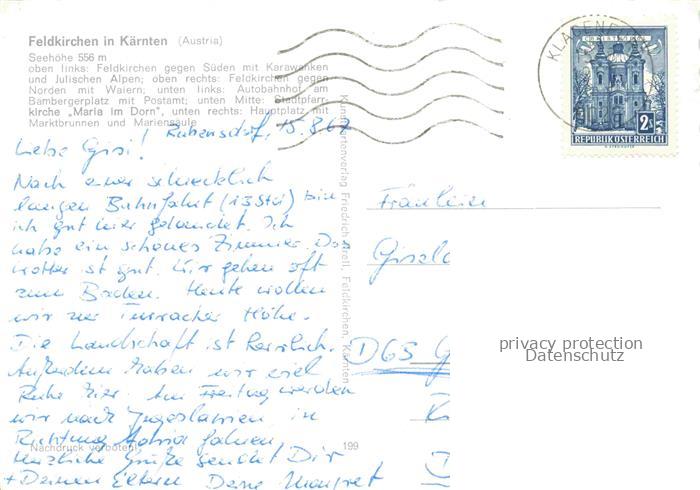 Feldkirchen in Kärnten (Austria)
Seehöhe 556 m
oben links: Feldkirchen gegen Süden mit Karawanken
und Julischen Alpen; oben rechts: Feldkirchen gegen
Norden mit Waiern; unten links: Autobahnhof am
Bambergerplatz mit Postamt; unten Mitte: Stadtpfarr-
kirche „Maria im Dorn", unten rechts: Hauptplatz mit
Marktbrunnen und Mariensäule
15.8.67
Liebe Gisi!
Nach einer schrecklich
langen Bahnfahrt (13 Std) bin
ich gut hier gelandet. Ich
habe ein schönes Zimmer. Das
Wetter ist gut. Wir gehen oft
zum Baden. Heute wollen
wir zur Turracher Höhe.
Die Landschaft ist herrlich.
Außerdem haben wir viel
Ruhe hier. Am Freitag werden
wir nach Jugoslawien in
Richtung Adria fahren.
Herzliche Grüße sendet Dir
+ Deinen Eltern Deine Margret
Nachdruck verboten!
199
Kunstkartenverlag Friedrich Strell, Feldkirchen, Kärnten
KLAGENFURT
CHRISTKINDL
2S
REPUBLIK ÖSTERREICH
Fräulein
Gisel
D65 G
privacy protection
Datenschutz